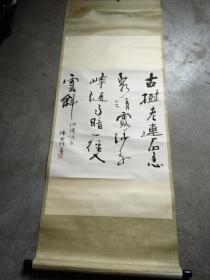 古樹老連石急
泉清露沙千
峰随雨暗一徑入
雲斜